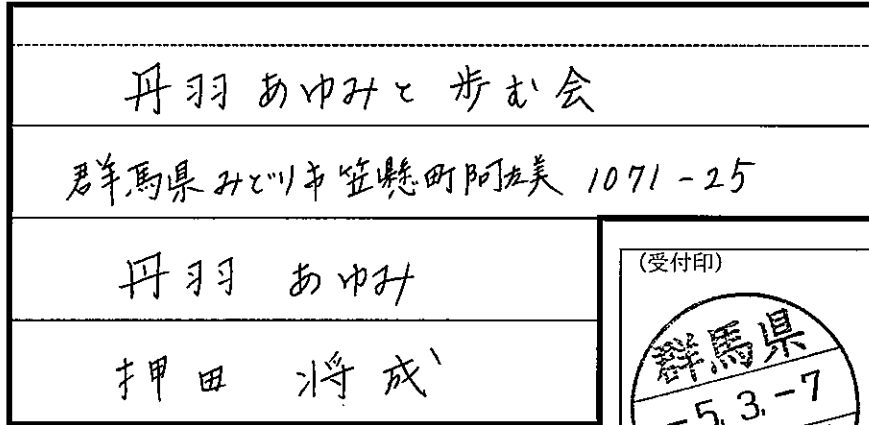 丹羽あゆみと歩む会
群馬県みどり市笠懸町阿左美 1071-25
丹羽 あゆみ
押田 将成
(受付印)
群馬県
-5.3.-7